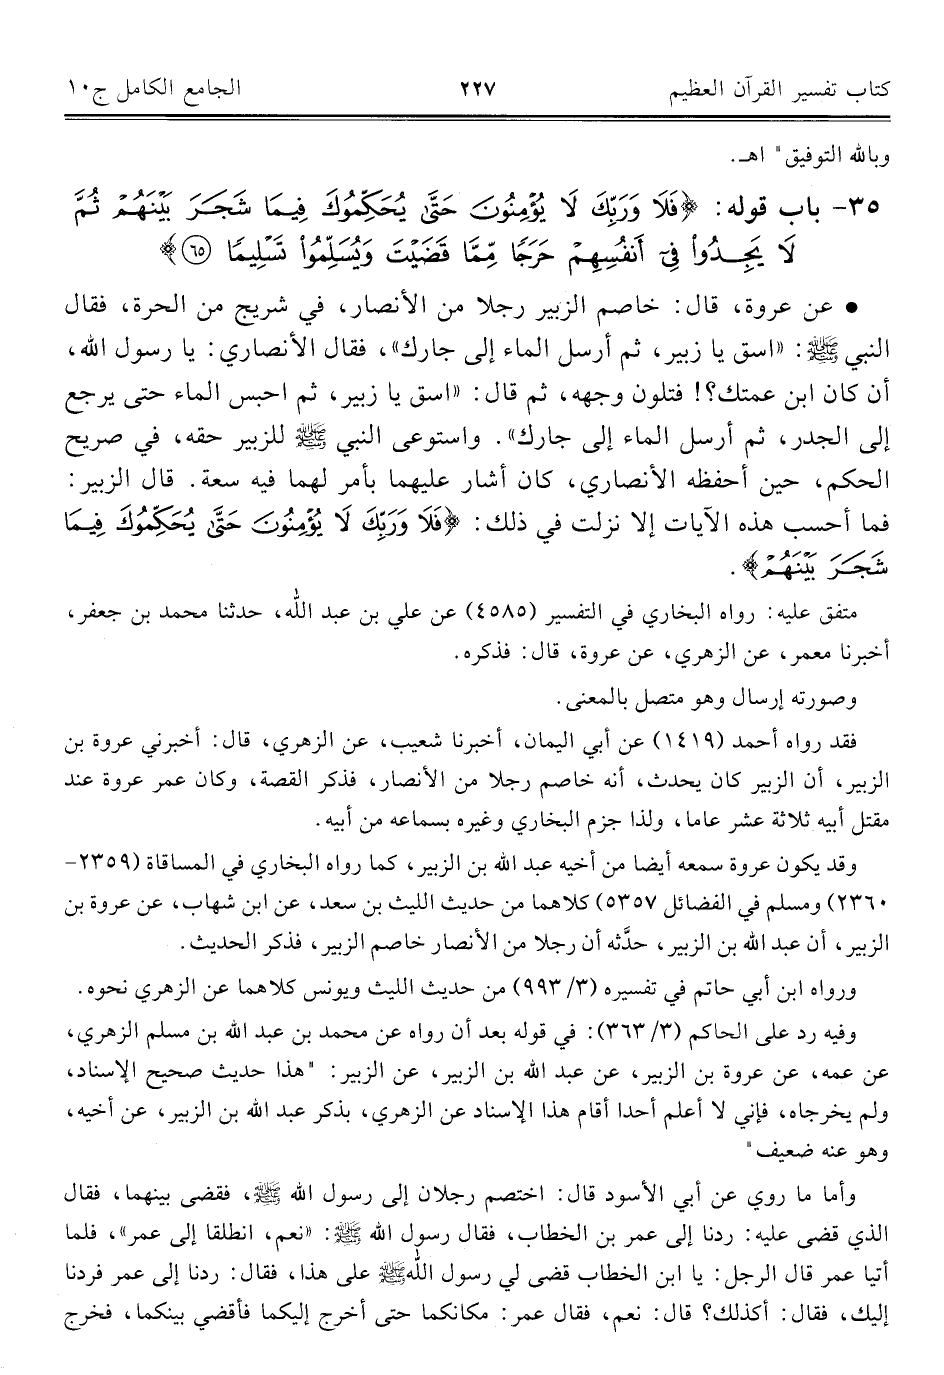 كتاب تفسير القرآن العظيم ٢٢٧ الجامع الكامل ج١٠
وبالله التوفيق" اهـ.
٣٥- باب قوله: ﴿فَلَا وَرَبِّكَ لَا يُؤْمِنُونَ حَتَّىٰ يُحَكِّمُوكَ فِيمَا شَجَرَ بَيْنَهُمْ ثُمَّ
لَا يَجِدُواْ فِىٓ أَنفُسِهِمْ حَرَجًا مِّمَّا قَضَيْتَ وَيُسَلِّمُواْ تَسْلِيمًا (٦٥)﴾
• عن عروة، قال: خاصم الزبير رجلا من الأنصار، في شريج من الحرة، فقال
النبي ﷺ: «اسق يا زبير، ثم أرسل الماء إلى جارك»، فقال الأنصاري: يا رسول الله،
أن كان ابن عمتك؟! فتلون وجهه، ثم قال: «اسق يا زبير، ثم احبس الماء حتى يرجع
إلى الجدر، ثم أرسل الماء إلى جارك». واستوعى النبي ﷺ للزبير حقه، في صريح
الحكم، حين أحفظه الأنصاري، كان أشار عليهما بأمر لهما فيه سعة. قال الزبير:
فما أحسب هذه الآيات إلا نزلت في ذلك: ﴿فَلَا وَرَبِّكَ لَا يُؤْمِنُونَ حَتَّىٰ يُحَكِّمُوكَ فِيمَا
شَجَرَ بَيْنَهُمْ﴾.
متفق عليه: رواه البخاري في التفسير (٤٥٨٥) عن علي بن عبد الله، حدثنا محمد بن جعفر،
أخبرنا معمر، عن الزهري، عن عروة، قال: فذكره.
وصورته إرسال وهو متصل بالمعنى.
فقد رواه أحمد (١٤١٩) عن أبي اليمان، أخبرنا شعيب، عن الزهري، قال: أخبرني عروة بن
الزبير، أن الزبير كان يحدث، أنه خاصم رجلا من الأنصار، فذكر القصة، وكان عمر عروة عند
مقتل أبيه ثلاثة عشر عاما، ولذا جزم البخاري وغيره بسماعه من أبيه.
وقد يكون عروة سمعه أيضا من أخيه عبد الله بن الزبير، كما رواه البخاري في المساقاة (٢٣٥٩-
٢٣٦٠) ومسلم في الفضائل ٥٣٥٧) كلاهما من حديث الليث بن سعد، عن ابن شهاب، عن عروة بن
الزبير، أن عبد الله بن الزبير، حدَّثه أن رجلا من الأنصار خاصم الزبير، فذكر الحديث.
ورواه ابن أبي حاتم في تفسيره (٣/ ٩٩٣) من حديث الليث ويونس كلاهما عن الزهري نحوه.
وفيه رد على الحاكم (٣/ ٣٦٣): في قوله بعد أن رواه عن محمد بن عبد الله بن مسلم الزهري،
عن عمه، عن عروة بن الزبير، عن عبد الله بن الزبير، عن الزبير: "هذا حديث صحيح الإسناد،
ولم يخرجاه، فإني لا أعلم أحدا أقام هذا الإسناد عن الزهري، بذكر عبد الله بن الزبير، عن أخيه،
وهو عنه ضعيف"
وأما ما روي عن أبي الأسود قال: اختصم رجلان إلى رسول الله ﷺ، فقضى بينهما، فقال
الذي قضى عليه: ردنا إلى عمر بن الخطاب، فقال رسول الله ﷺ: «نعم، انطلقا إلى عمر»، فلما
أتيا عمر قال الرجل: يا ابن الخطاب قضى لي رسول اللهﷺ على هذا، فقال: ردنا إلى عمر فردنا
إليك، فقال: أكذلك؟ قال: نعم، فقال عمر: مكانكما حتى أخرج إليكما فأقضي بينكما، فخرج